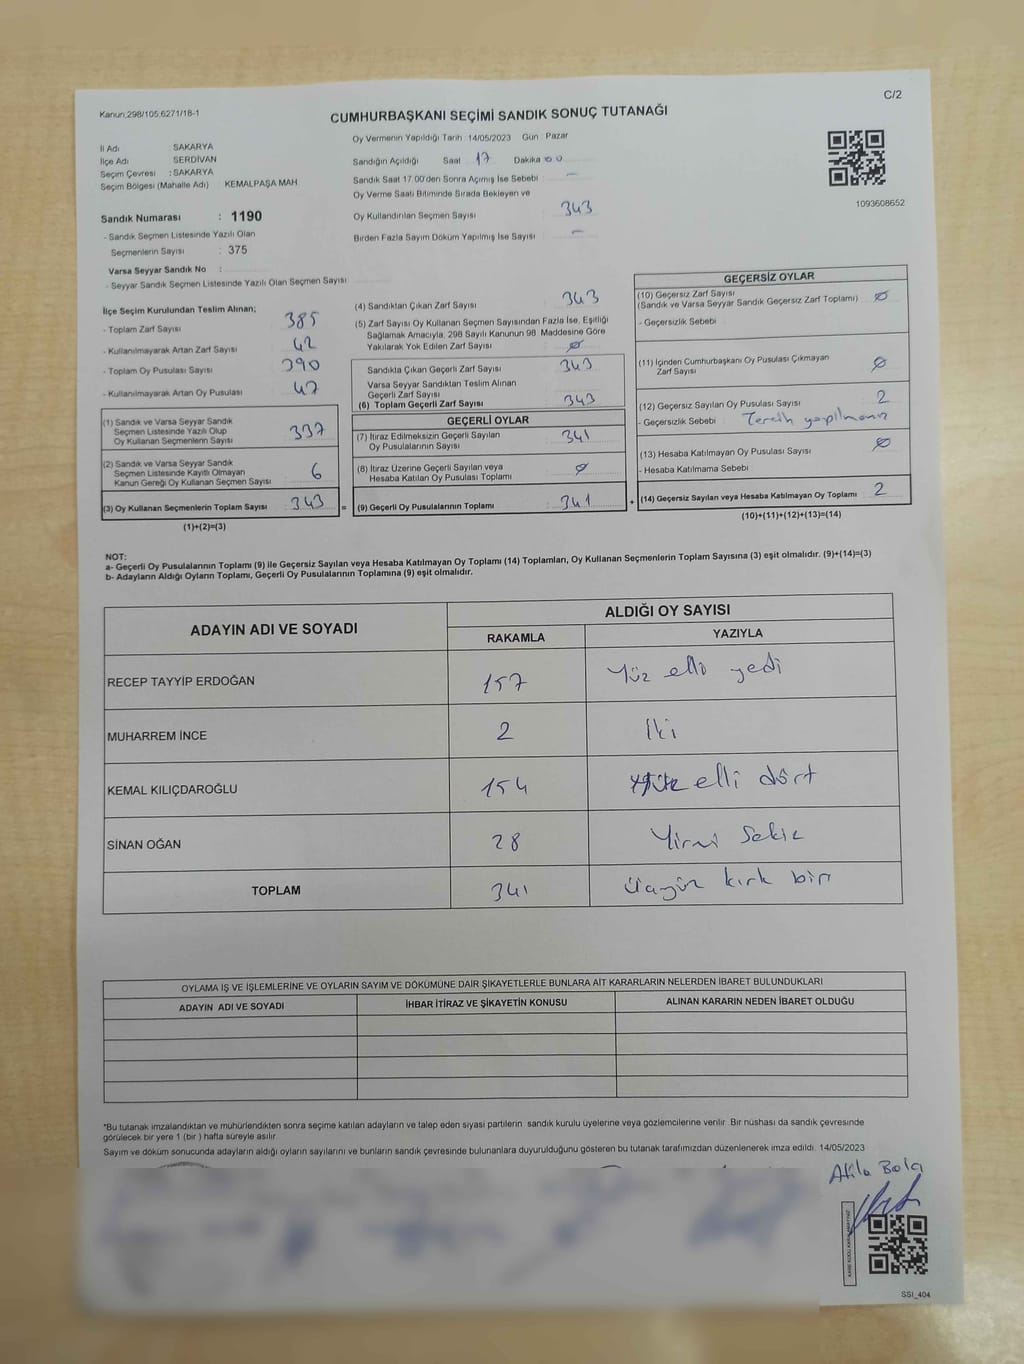 C/2
Kanun,298/105.6271/18-1
CUMHURBAŞKANI SEÇİMİ SANDIK SONUÇ TUTANAĞI
Oy Vermenin Yapıldığı Tarih :14/05/2023 Gün : Pazar
İl Adı : SAKARYA
İlçe Adı : SERDİVAN
Seçim Çevresi : SAKARYA
Seçim Bölgesi (Mahalle Adı) : KEMALPAŞA MAH.
Sandık Numarası : 1190
- Sandık Seçmen Listesinde Yazılı Olan
Seçmenlerin Sayısı : 375
Varsa Seyyar Sandık No :
- Seyyar Sandık Seçmen Listesinde Yazılı Olan Seçmen Sayısı
Sandığın Açıldığı Saat : 17 Dakika : 00
Sandık Saat 17:00'den Sonra Açımış İse Sebebi : -
Oy Verme Saati Bitiminde Sırada Bekleyen ve
Oy Kullandırılan Seçmen Sayısı : 343
Birden Fazla Sayım Döküm Yapılmış İse Sayısı : -
1093608652
İlçe Seçim Kurulundan Teslim Alınan;
- Toplam Zarf Sayısı : 385
- Kullanılmayarak Artan Zarf Sayısı : 42
- Toplam Oy Pusulası Sayısı : 390
- Kullanılmayarak Artan Oy Pusulası : 47
(1) Sandık ve Varsa Seyyar Sandık
Seçmen Listesinde Yazılı Olup
Oy Kullanan Seçmenlerin Sayısı : 337
(2) Sandık ve Varsa Seyyar Sandık
Seçmen Listesinde Kayıtlı Olmayan
Kanun Gereği Oy Kullanan Seçmen Sayısı : 6
(3) Oy Kullanan Seçmenlerin Toplam Sayısı : 343 =
(1)+(2)=(3)
(4) Sandıktan Çıkan Zarf Sayısı : 343
(5) Zarf Sayısı Oy Kullanan Seçmen Sayısından Fazla İse, Eşitliği
Sağlamak Amacıyla; 298 Sayılı Kanunun 98. Maddesine Göre
Yakılarak Yok Edilen Zarf Sayısı : Ø
Sandıkta Çıkan Geçerli Zarf Sayısı : 343
Varsa Seyyar Sandıktan Teslim Alınan
Geçerli Zarf Sayısı
(6) Toplam Geçerli Zarf Sayısı : 343
GEÇERLİ OYLAR
(7) İtiraz Edilmeksizin Geçerli Sayılan : 341
Oy Pusulalarının Sayısı
(8) İtiraz Üzerine Geçerli Sayılan veya : Ø
Hesaba Katılan Oy Pusulası Toplamı
(9) Geçerli Oy Pusulalarının Toplamı : 341 +
GEÇERSİZ OYLAR
(10) Geçersiz Zarf Sayısı : Ø
(Sandık ve Varsa Seyyar Sandık Geçersiz Zarf Toplamı)
- Geçersizlik Sebebi :
(11) İçinden Cumhurbaşkanı Oy Pusulası Çıkmayan : Ø
Zarf Sayısı
(12) Geçersiz Sayılan Oy Pusulası Sayısı : 2
- Geçersizlik Sebebi : Tercih yapılmamış
(13) Hesaba Katılmayan Oy Pusulası Sayısı : Ø
- Hesaba Katılmama Sebebi :
(14) Geçersiz Sayılan veya Hesaba Katılmayan Oy Toplamı : 2
(10)+(11)+(12)+(13)=(14)
NOT:
a- Geçerli Oy Pusulalarının Toplamı (9) ile Geçersiz Sayılan veya Hesaba Katılmayan Oy Toplamı (14) Toplamları, Oy Kullanan Seçmenlerin Toplam Sayısına (3) eşit olmalıdır. (9)+(14)=(3)
b- Adayların Aldığı Oyların Toplamı, Geçerli Oy Pusulalarının Toplamına (9) eşit olmalıdır.
ADAYIN ADI VE SOYADI ALDIĞI OY SAYISI
RAKAMLA YAZIYLA
RECEP TAYYİP ERDOĞAN 157 Yüz elli yedi
MUHARREM İNCE 2 İki
KEMAL KILIÇDAROĞLU 154 Yüz elli dört
SİNAN OĞAN 28 Yirmi Sekiz
TOPLAM 341 Üçyüz kırk bir
OYLAMA İŞ VE İŞLEMLERİNE VE OYLARIN SAYIM VE DÖKÜMÜNE DAİR ŞİKAYETLERLE BUNLARA AİT KARARLARIN NELERDEN İBARET BULUNDUKLARI
ADAYIN ADI VE SOYADI İHBAR İTİRAZ VE ŞİKAYETİN KONUSU ALINAN KARARIN NEDEN İBARET OLDUĞU
*Bu tutanak imzalandıktan ve mühürlendikten sonra seçime katılan adayların ve talep eden siyasi partilerin sandık kurulu üyelerine veya gözlemcilerine verilir. Bir nüshası da sandık çevresinde
görülecek bir yere 1 (bir ) hafta süreyle asılır.
Sayım ve döküm sonucunda adayların aldığı oyların sayılarını ve bunların sandık çevresinde bulunanlara duyurulduğunu gösteren bu tutanak tarafımızdan düzenlenerek imza edildi. 14/05/2023
Atila Bola
SSI_404